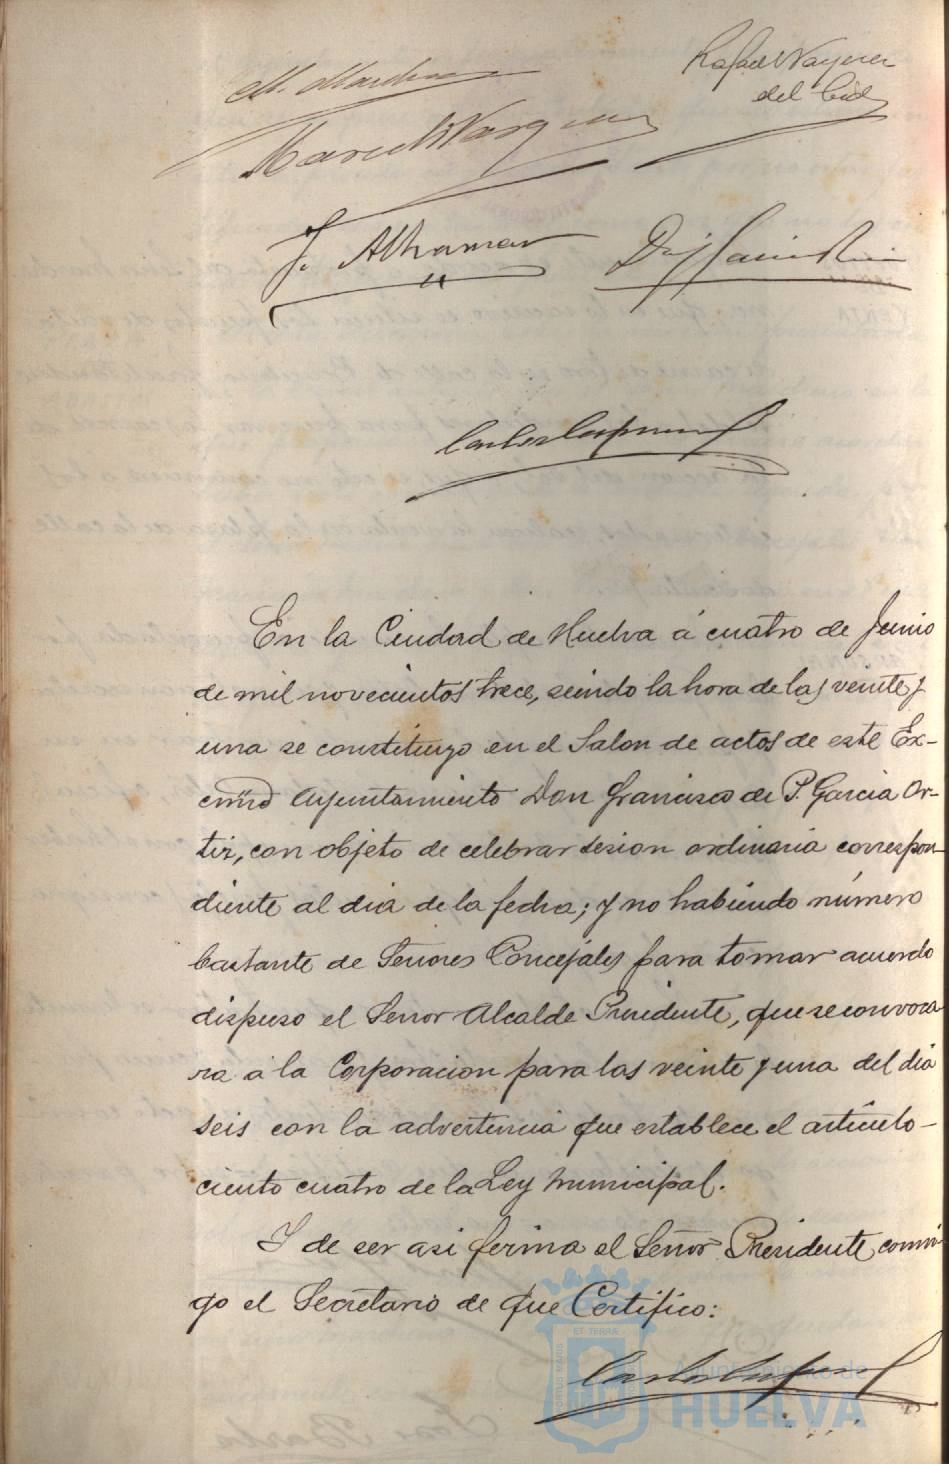 Rafael Vazquez
del Cid
J. Alhamar
En la Ciudad de Huelva á cuatro de Junio
de mil novecientos trece, seindo la hora de las veinte y
una se constituyo en el Salon de actos de este Ex-
cmo Ayuntamiento Don Francisco de P. Garcia Or-
tiz, con objeto de celebrar sesion ordinaria correspon-
diente al dia de la fecha; y no habiendo número
bastante de Señores Concejales para tomar acuerdo
dispuso el Señor Alcalde Presidente, que se convoca
ra á la Corporacion para las veinte y una del dia
seis con la advertencia que establece el artículo-
ciento cuatro de la Ley Municipal.
Y de ser asi firma el Señor Presidente conmi-
go el Secretario de que Certifico:
Ayuntamiento de
HUELVA